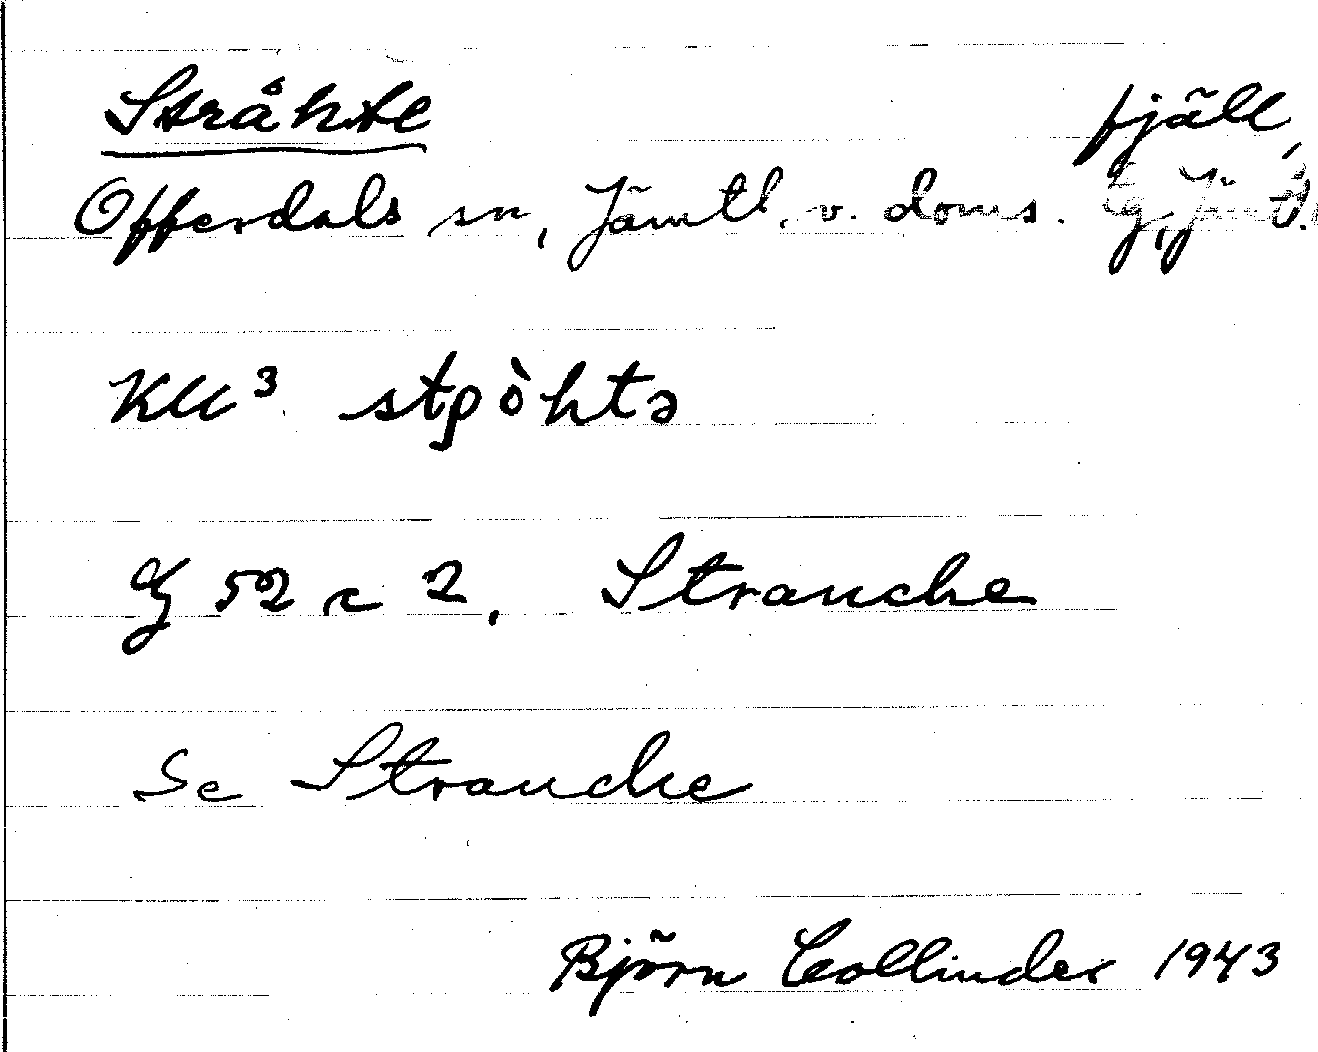 Stråhte fjäll,
Offerdals sn, Jämtl. v. doms. lg, Jämtl.
KU³ stpòhtə
G 52 c 2, Strauche
Se Strauche
Björn Collinder 1943